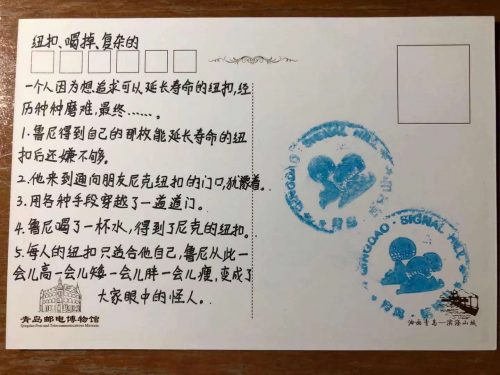 纽扣、喝掉、复杂的
一个人因为想追求可以延长寿命的纽扣，经
历种种磨难，最终……。
1.鲁尼得到自己的那枚能延长寿命的纽
扣后还嫌不够。
2.他来到通向朋友尼克纽扣的门口，犹豫着。
3.用各种手段穿越了一道道门。
4.鲁尼喝了一杯水，得到了尼克的纽扣。
5.每人的纽扣只适合他自己，鲁尼从此一
会儿高一会儿矮一会儿胖一会儿瘦，变成了
大家眼中的怪人。
青岛邮电博物馆
Qingdao Post and Telecommunications Museum
QINGDAO · SIGNAL HILL
QINGDAO · SIGNAL HILL
青岛
滨海山城